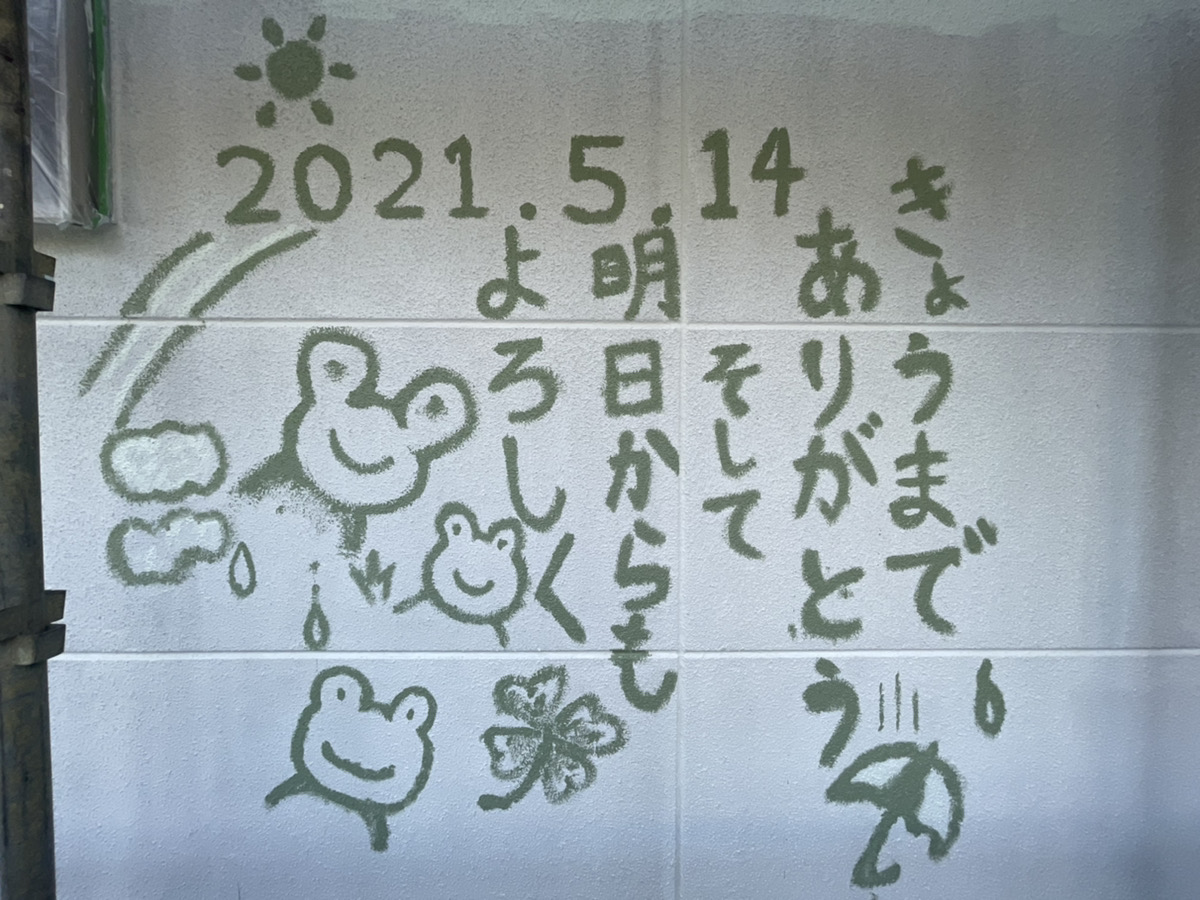 2021.5.14
きょうまで
ありがとう
そして
明日からも
よろしく